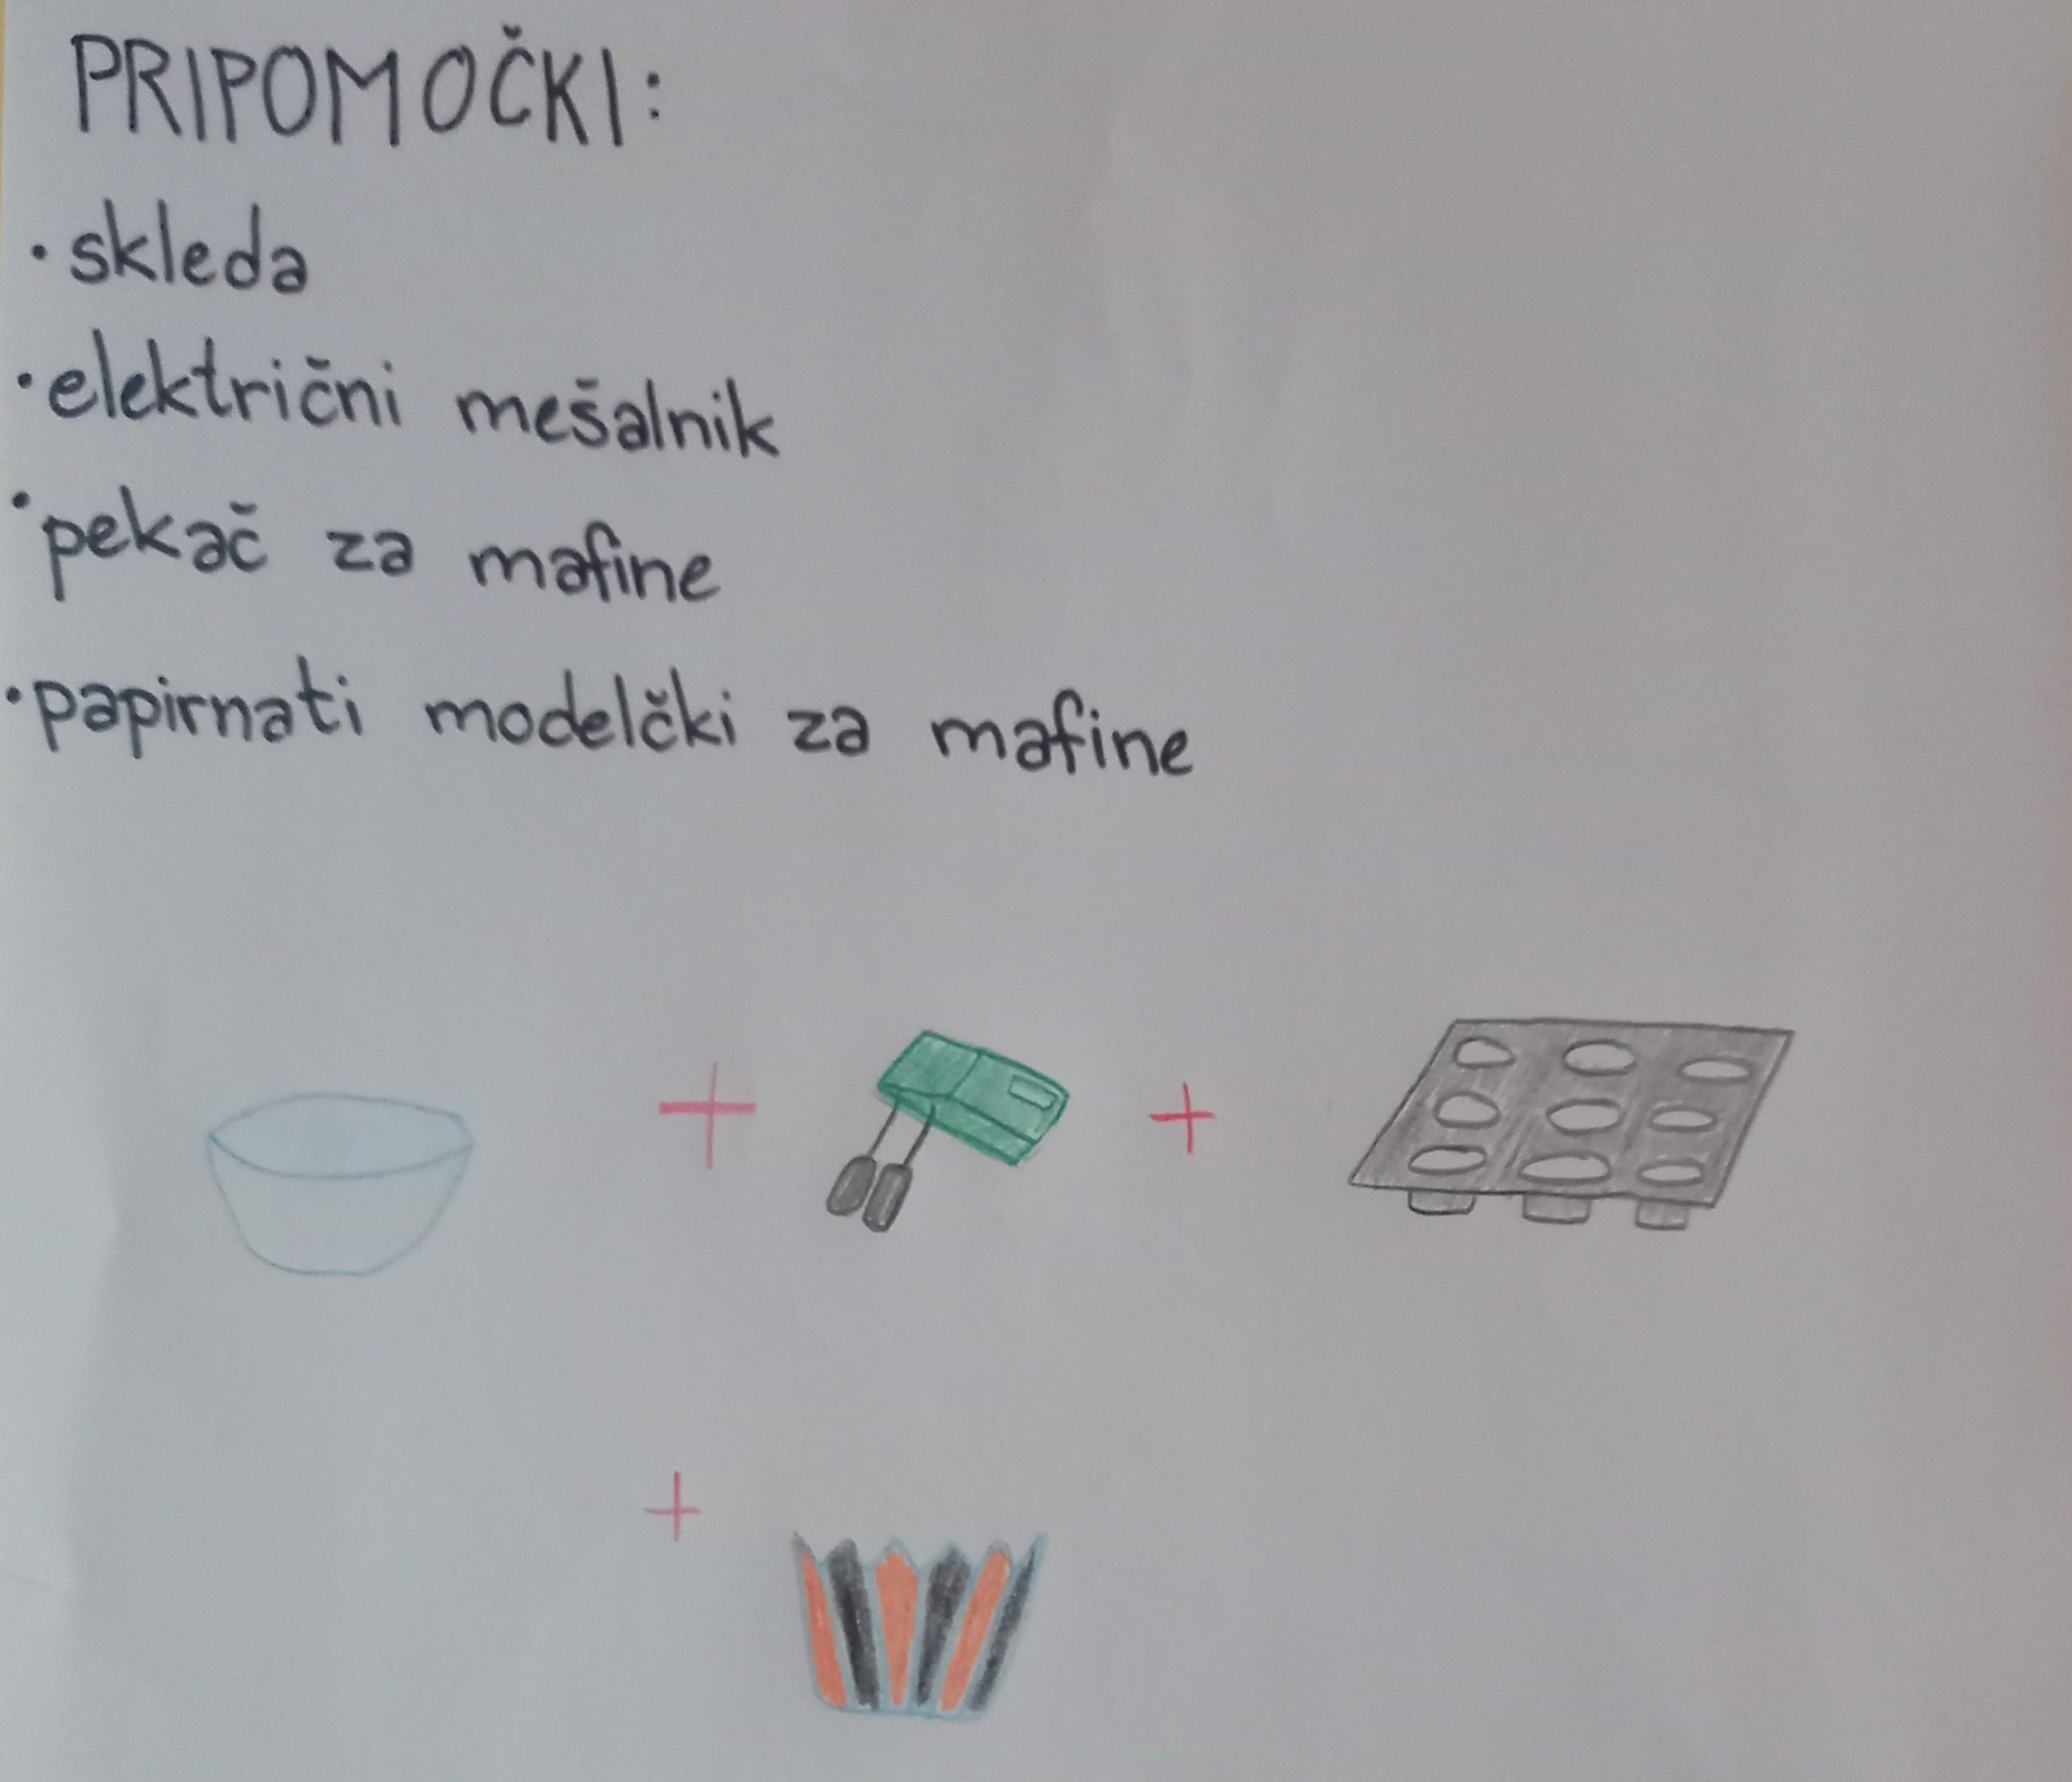 PRIPOMOČKI:
• skleda
• električni mešalnik
• pekač za mafine
• papirnati modelčki za mafine
+ +
+